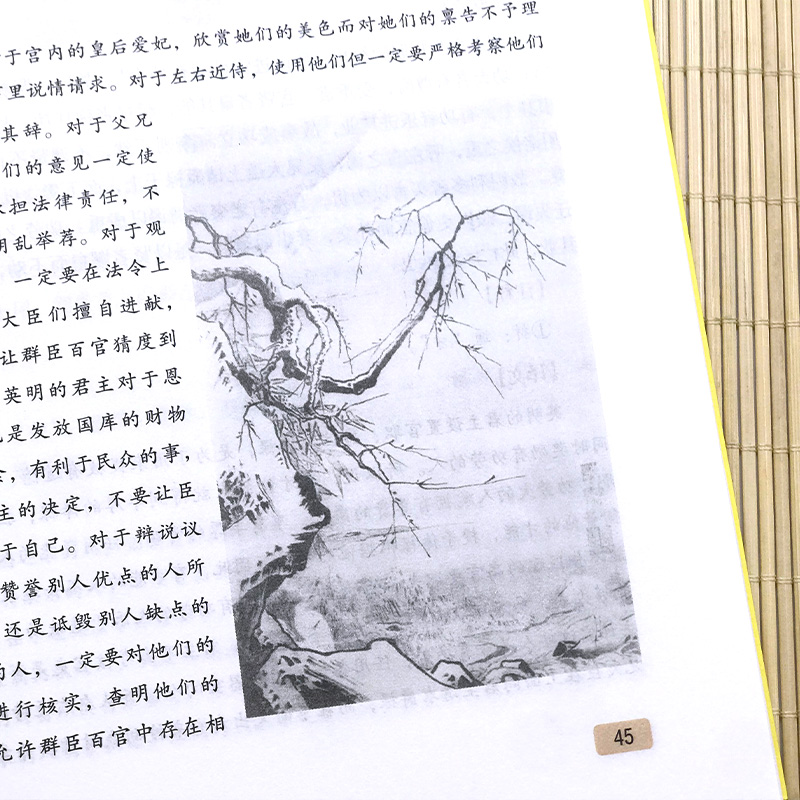 于宫内的皇后爱妃，欣赏她们的美色而对她们的禀告不予理
里说情请求。对于左右近侍，使用他们但一定要严格考察他们
其辞。对于父兄
们的意见一定使
承担法律责任，不
胡乱举荐。对于观
一定要在法令上
大臣们擅自进献，
让群臣百官猜度到
英明的君主对于恩
是发放国库的财物
，有利于民众的事，
主的决定，不要让臣
于自己。对于辩说议
赞誉别人优点的人所
还是诋毁别人缺点的
的人，一定要对他们的
进行核实，查明他们的
允许群臣百官中存在相
45